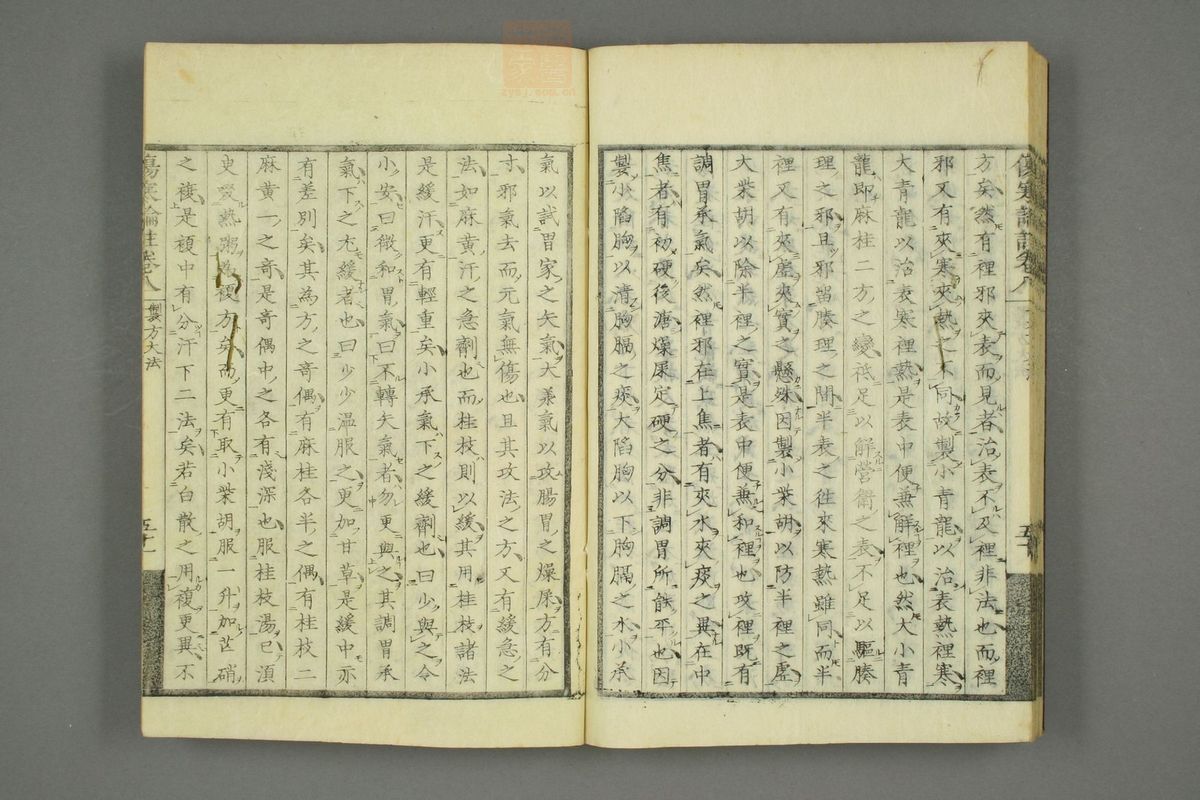 方矣然有裡邪夾表而見者治表不及裡非法也而裡
邪又有夾寒夾熱之不同故製小青龍以治表熱裡寒
大青龍以治表寒裡熱是表中便兼解裡也然大小青
龍即麻桂二方之變祗足以解營衛之表不足以驅腠
理之邪且邪留腠理之間半表之往來寒熱雖同而半
裡又有夾虛夾實之懸殊因製小柴胡以防半裡之虛
大柴胡以除半裡之實是表中便兼和裡也攻裡既有
調胃承氣矣然裡邪在上焦者有夾水夾痰之異在中
焦者有初硬後溏燥屎定硬之分非調胃所能平也因
製小陷胸以清胸膈之痰大陷胸以下胸膈之水小承
氣以試胃家之矢氣大羕氣以攻腸胃之燥屎方有分
寸邪氣去而元氣無傷也且其攻法之方又有緩急之
法如麻黃汗之急劑也而桂枝則以緩其用桂枝諸法
是緩汗更有輕重矣小承氣下之緩劑也曰少與之令
小安曰微和胃氣曰不轉矢氣者勿更與之其調胃承
氣下之尤緩者也曰少少温服之更加甘草是緩中亦
有差別矣其為方之奇偶有麻桂各半之偶有桂枝二
麻黃一之奇是奇偶中之各有淺深也服桂枝湯已須
臾啜熱粥為複方矣而更有取小柴胡服一升加芒硝
之複是複中有分汗下二法矣若白散之用複更異不
傷寒論註卷八
製方大法
五十一
傷寒論註卷八
五十
zysj.com.cn